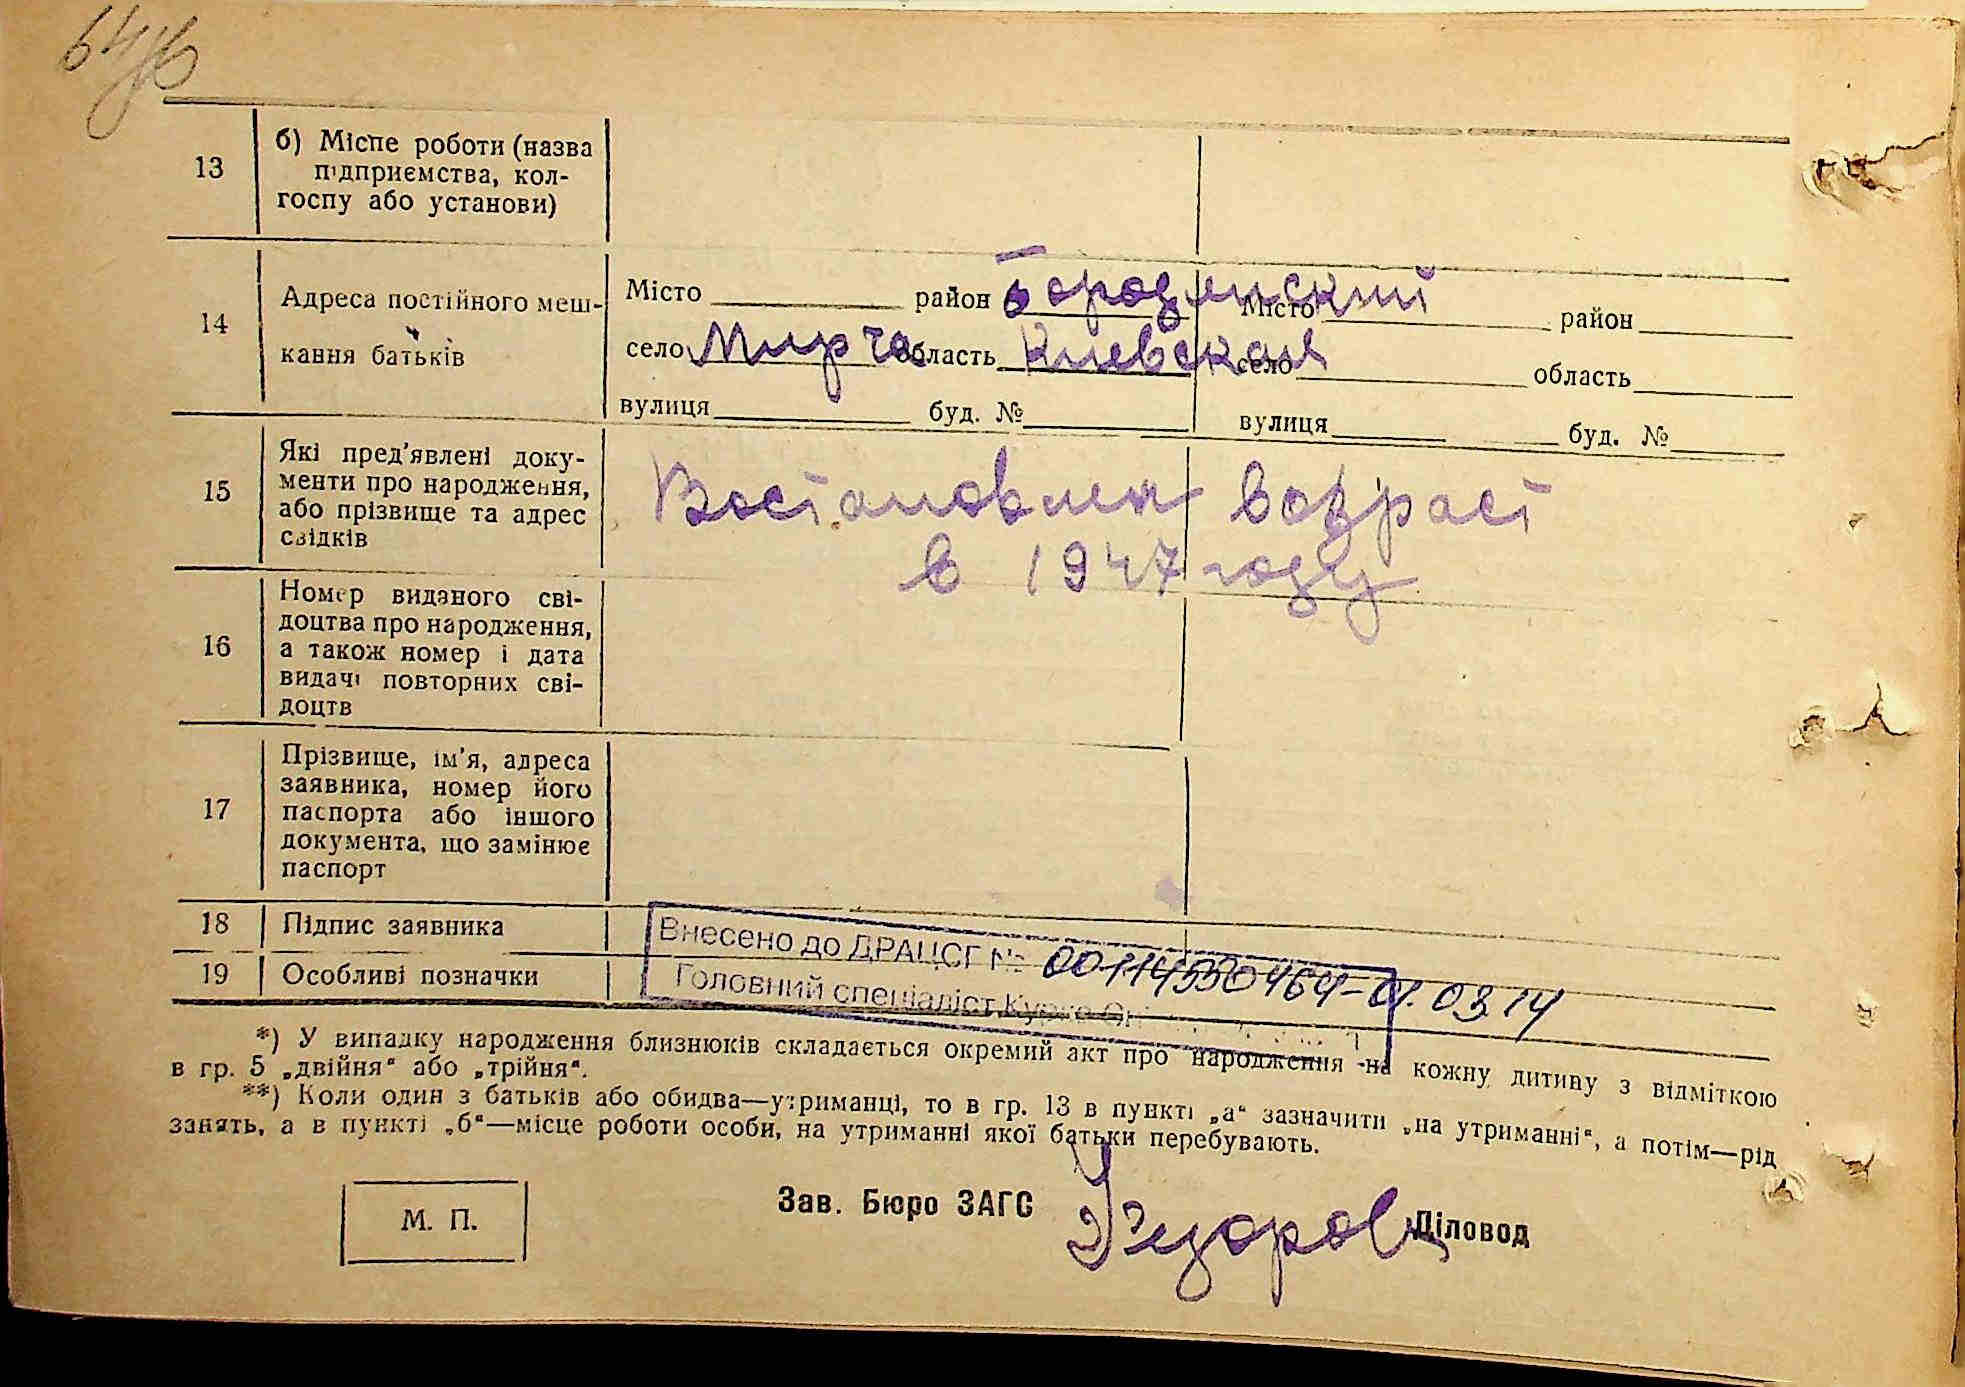 64
13
б) Місце роботи (назва
підприємства, кол-
госпу або установи)
14
Адреса постійного меш-
кання батьків
Місто район Бородянский
село Мирча область Киевская
вулиця буд. №
Місто район
село область
вулиця буд. №
15
Які пред'явлені доку-
менти про народження,
або прізвище та адрес
свідків
Востановлен возраст
в 1947 году
16
Номер виданого сві-
доцтва про народження,
а також номер і дата
видачі повторних сві-
доцтв
17
Прізвище, ім'я, адреса
заявника, номер його
паспорта або іншого
документа, що замінює
паспорт
18
Підпис заявника
19
Особливі позначки
Внесено до ДРАЦСГ № 00114550464-01.03.14
Головний спеціаліст
*) У випадку народження близнюків складається окремий акт про народження на кожну дитину з відміткою
в гр. 5 „двійня“ або „трійня“.
**) Коли один з батьків або обидва—утриманці, то в гр. 13 в пункті „а“ зазначити „на утриманні“, а потім—рід
занять, а в пункті „б“—місце роботи особи, на утриманні якої батьки перебувають.
М. П.
Зав. Бюро ЗАГС
Діловод